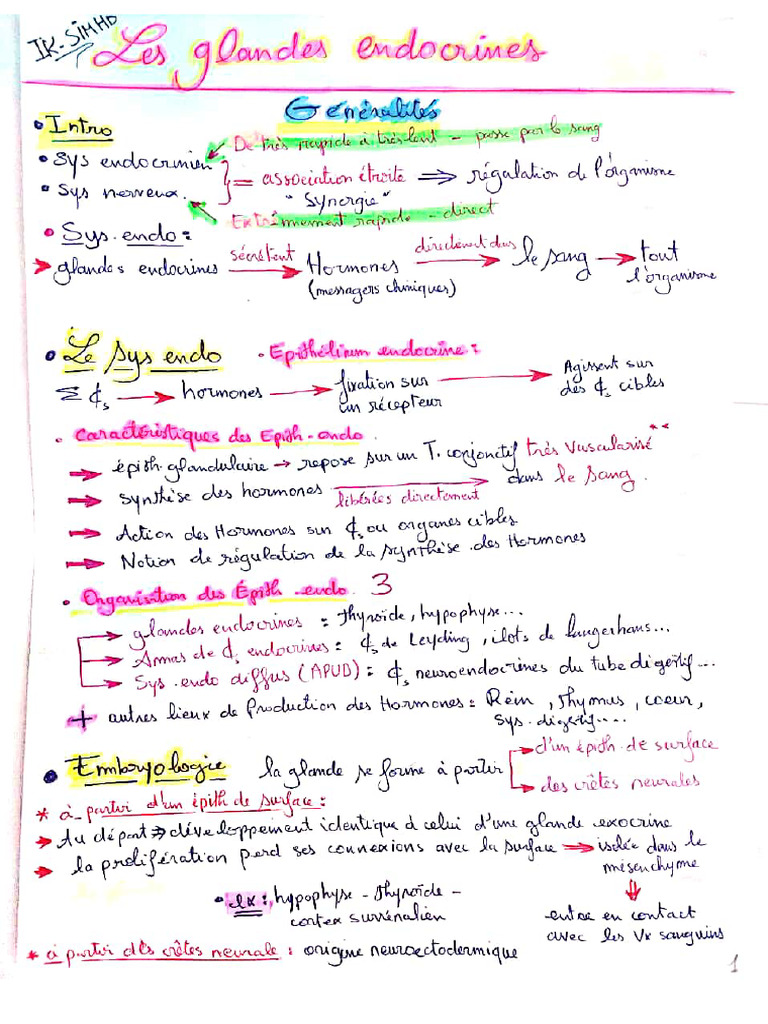 IK-SIHHD
Les glandes endocrines
Généralités
• Intro
De très rapide à très lent - passe par le sang
• Sys endocrinien
• Sys nerveux.
= association étroite ⇒ régulation de l'organisme
"Synergie"
Extrêmement rapide - direct
• Sys. endo :
glandes endocrines sécrètent → Hormones directement dans → le sang → tout l'organisme
(messagers chimiques)
• Le sys endo
• Epithélium endocrine :
Σ ₵s → hormones → fixation sur un récepteur → Agissent sur des ₵s cibles
• Caractéristiques des Epith-endo
→ épith. glandulaire → repose sur un T. conjonctif très vascularisé **
→ synthèse des hormones libérées directement → dans le sang.
→ Action des Hormones sur ₵s ou organes cibles
→ Notion de régulation de la synthèse des Hormones
• Organisation des Épith-endo. 3
→ glandes endocrines : thyroïde, hypophyse...
→ Amas de ₵s endocrines : ₵s de Leyding, ilots de Langerhans...
→ Sys. endo diffus (APUD) : ₵s neuroendocrines du tube digestif...
+ autres lieux de Production des Hormones : Rein, thymus, coeur,
sys. digestif....
• Embryologie la glande se forme à partir
→ d'un épith. de surface
→ des crêtes neurales
* à partir d'un épith de surface :
→ Au départ ⇒ développement identique à celui d'une glande exocrine
→ la prolifération perd ses connexions avec la surface ⇒ isolée dans le mésenchyme
⇓
entre en contact
avec les Vx sanguins
• ex : hypophyse - thyroïde -
cortex surrénalien
* à partir des crêtes neurale : origine neuroectodermique
1